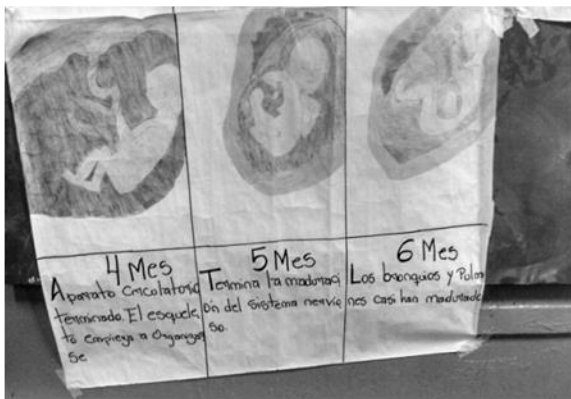 4 Mes
Aparato Circolatorio
terminado. El esquele
to empieza a Organizar
Se
5 Mes
Termina la maduraci
ón del sistema nervio
so.
6 Mes
Los bronquios y Pulmo
nes casi han madurado